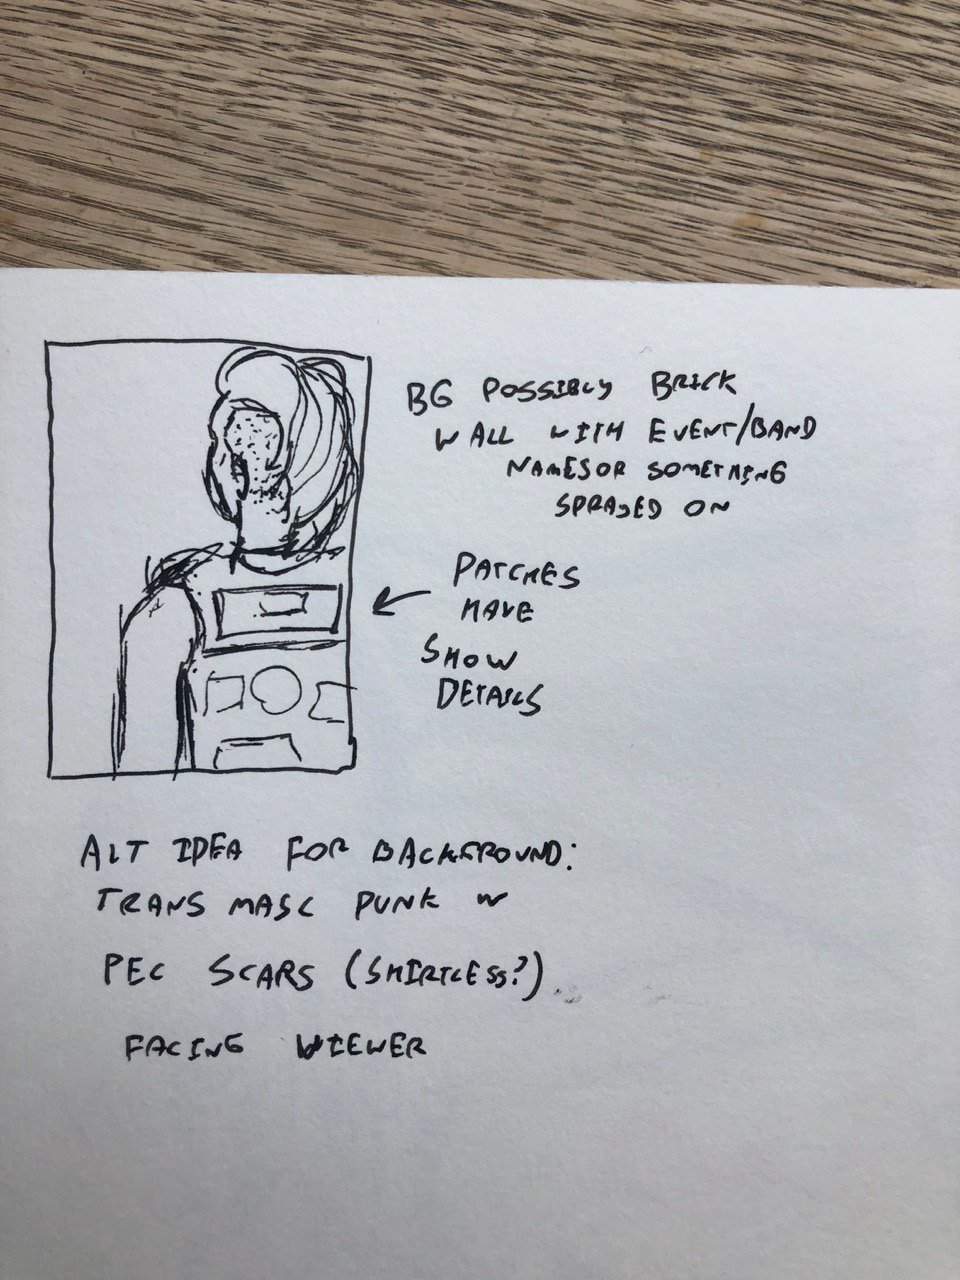 BG POSSIBLY BRICK
WALL WITH EVENT/BAND
NAMESOR SOMETHING
SPRAYED ON
PATCHES
HAVE
SHOW
DETAILS
ALT IDEA FOR BACKGROUND:
TRANS MASC PUNK W
PEC SCARS (SHIRTLESS?)
FACING VIEWER